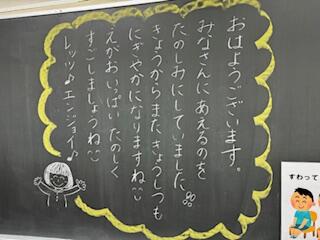 おはようございます。
みなさんにあえるのを
たのしみにしていました。
きょうからまたきょうしつも
にぎやかになりますね
えがおいっぱいたのしく
すごしましょうね
レッツ♪エンジョイ♪
すわって